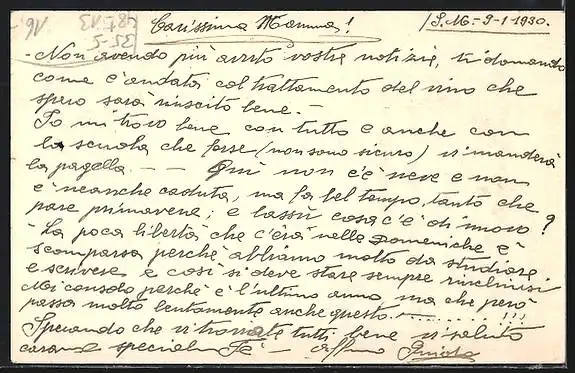 Carissima Mamma!
S. M. - 9-1-1930.
- Non avendo più avuto vostre notizie, vi domando
come è andata col trattamento del vino che
spero sarà riuscito bene. -
Io mi trovo bene con tutto e anche con
la scuola che forse (non sono sicuro) vi manderà
la pagella. - - Qui non c'è neve e non
è neanche caduta, ma fa bel tempo, tanto che
pare primavera; e lassù cosa c'è di nuovo?
La poca libertà che c'era nelle domeniche è
scomparsa perchè abbiamo molto da studiare
e scrivere e così si deve stare sempre rinchiusi
Mi consolo perchè è l'ultimo anno, ma che però
passa molto lentamente anche questo. ........!!!
Sperando che vi troviate tutti bene vi saluto
special Te - aff.mo